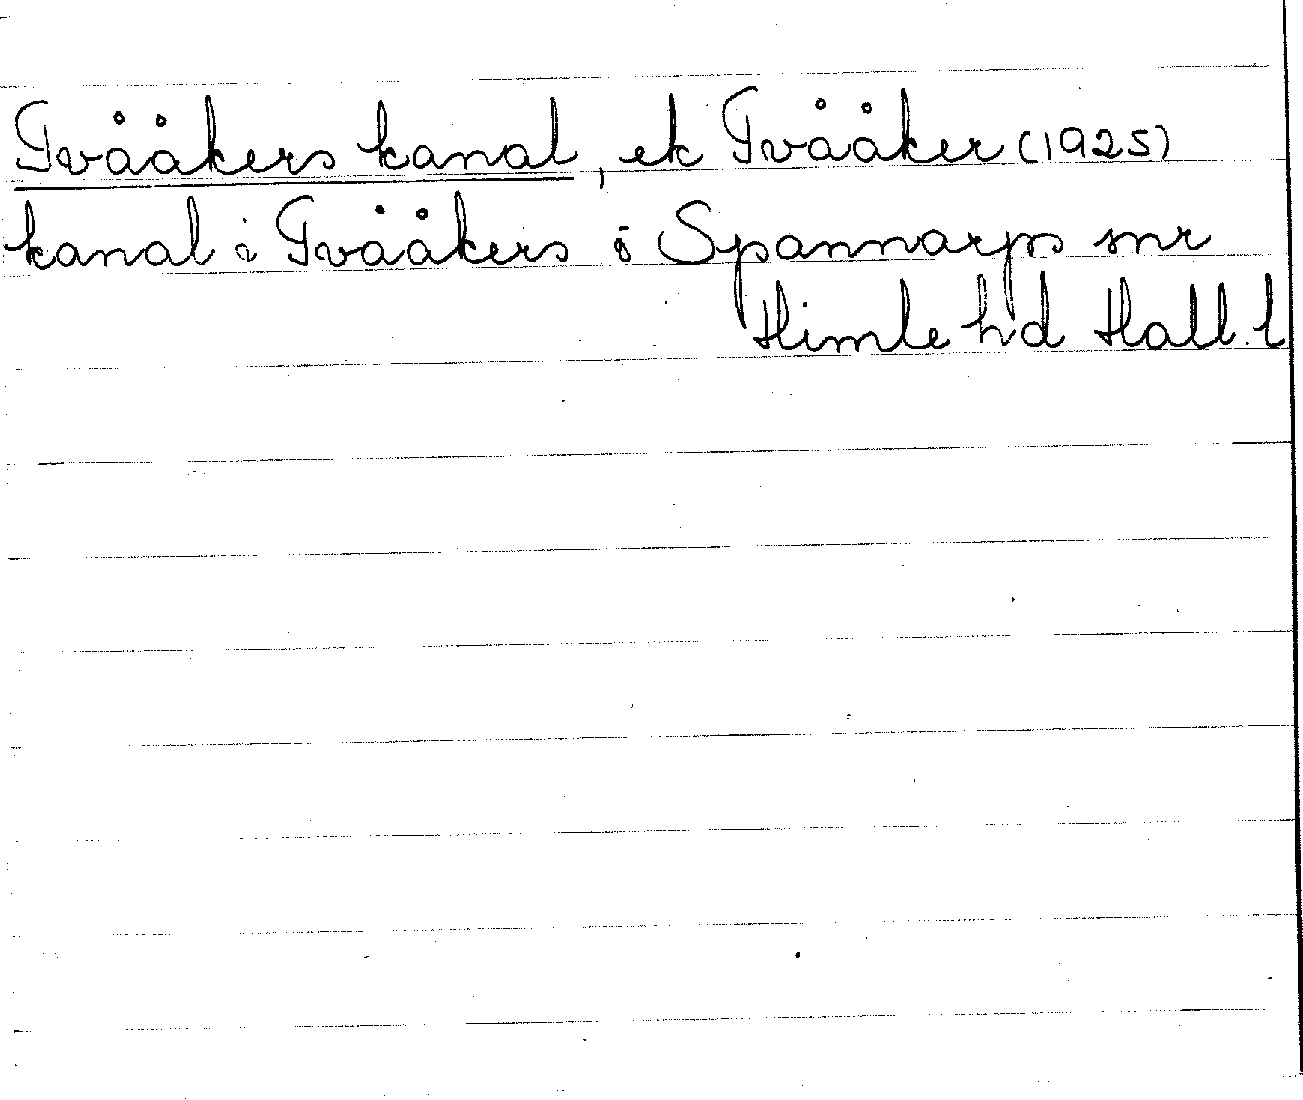 Tvååkers kanal, ek Tvååker (1925)
kanal i Tvååkers o Spannarps snr
Himle hd Hall. l